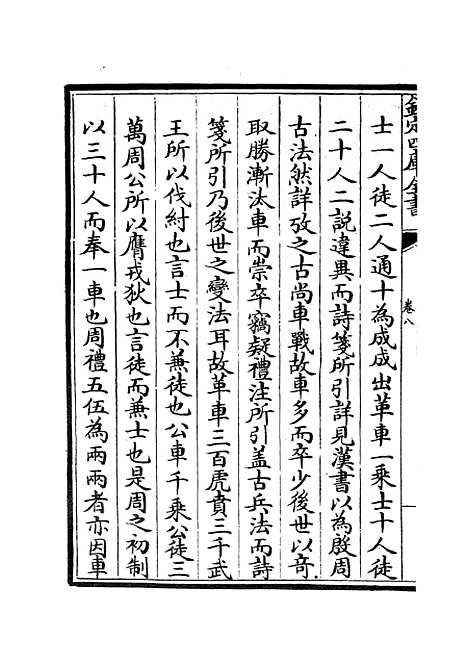 欽定四庫全書
卷八
士一人徒二人通十為成成出革車一乘士十人徒
二十人二説違異而詩箋所引詳見漢書以為殷周
古法然詳攷之古尚車戰故車多而卒少後世以竒
取勝漸汰車而崇卒竊疑禮注所引盖古兵法而詩
箋所引乃後世之變法耳故革車三百虎賁三千武
王所以伐紂也言士而不兼徒也公車千乘公徒三
萬周公所以膺戎狄也言徒而兼士也是周之初制
以三十人而奉一車也周禮五伍為兩兩者亦因車